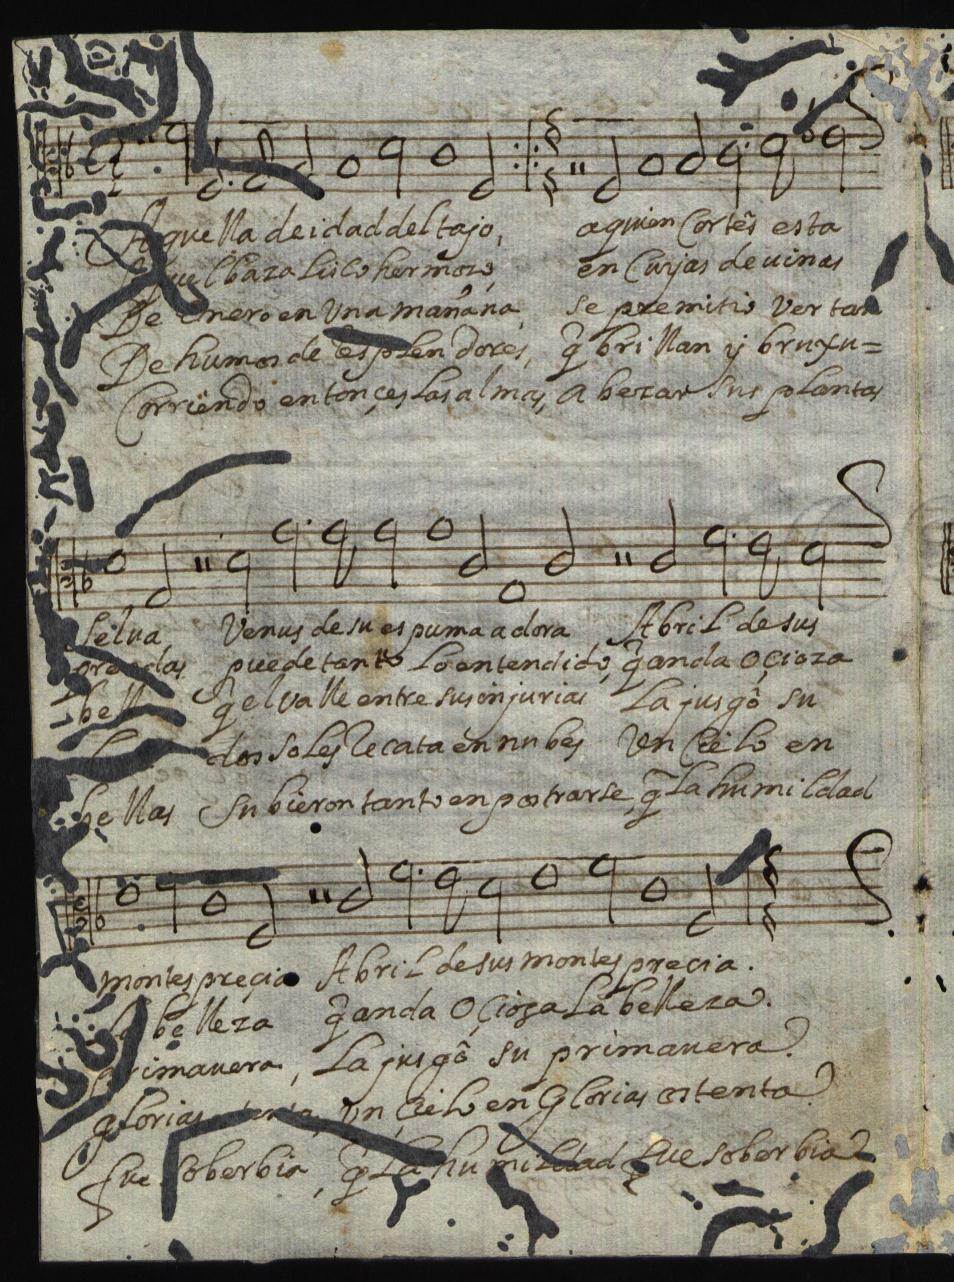 Aquella deidad del tajo, aquien Cortés esta
lisco hermozo, en Cuyas deuinas
De enero en Una mañana, se premitio Ver tan
De humos de esplendores, q̃ brillan y bruxu=
Corriendo entonçes las almas, A bezar sus plantas
selua Venus de su espuma adora Abril de sus
prendas puede tanto Lo entendido, q̃ anda Oçioza
bella q̃ el valle entre sus injurias La jusgô su
dos soles Recata en nubes Un Cielo en
bellas Subieron tanto en postrarse, q̃ La humildad
montes preçia Abril de sus montes preçia.
La belleza q̃ anda Oçioza La belleza.
primauera, La jusgô su primauera.
glorias ostenta, Un Cielo en Glorias ostenta.
fue soberbia, q̃ La humildad fue soberbia